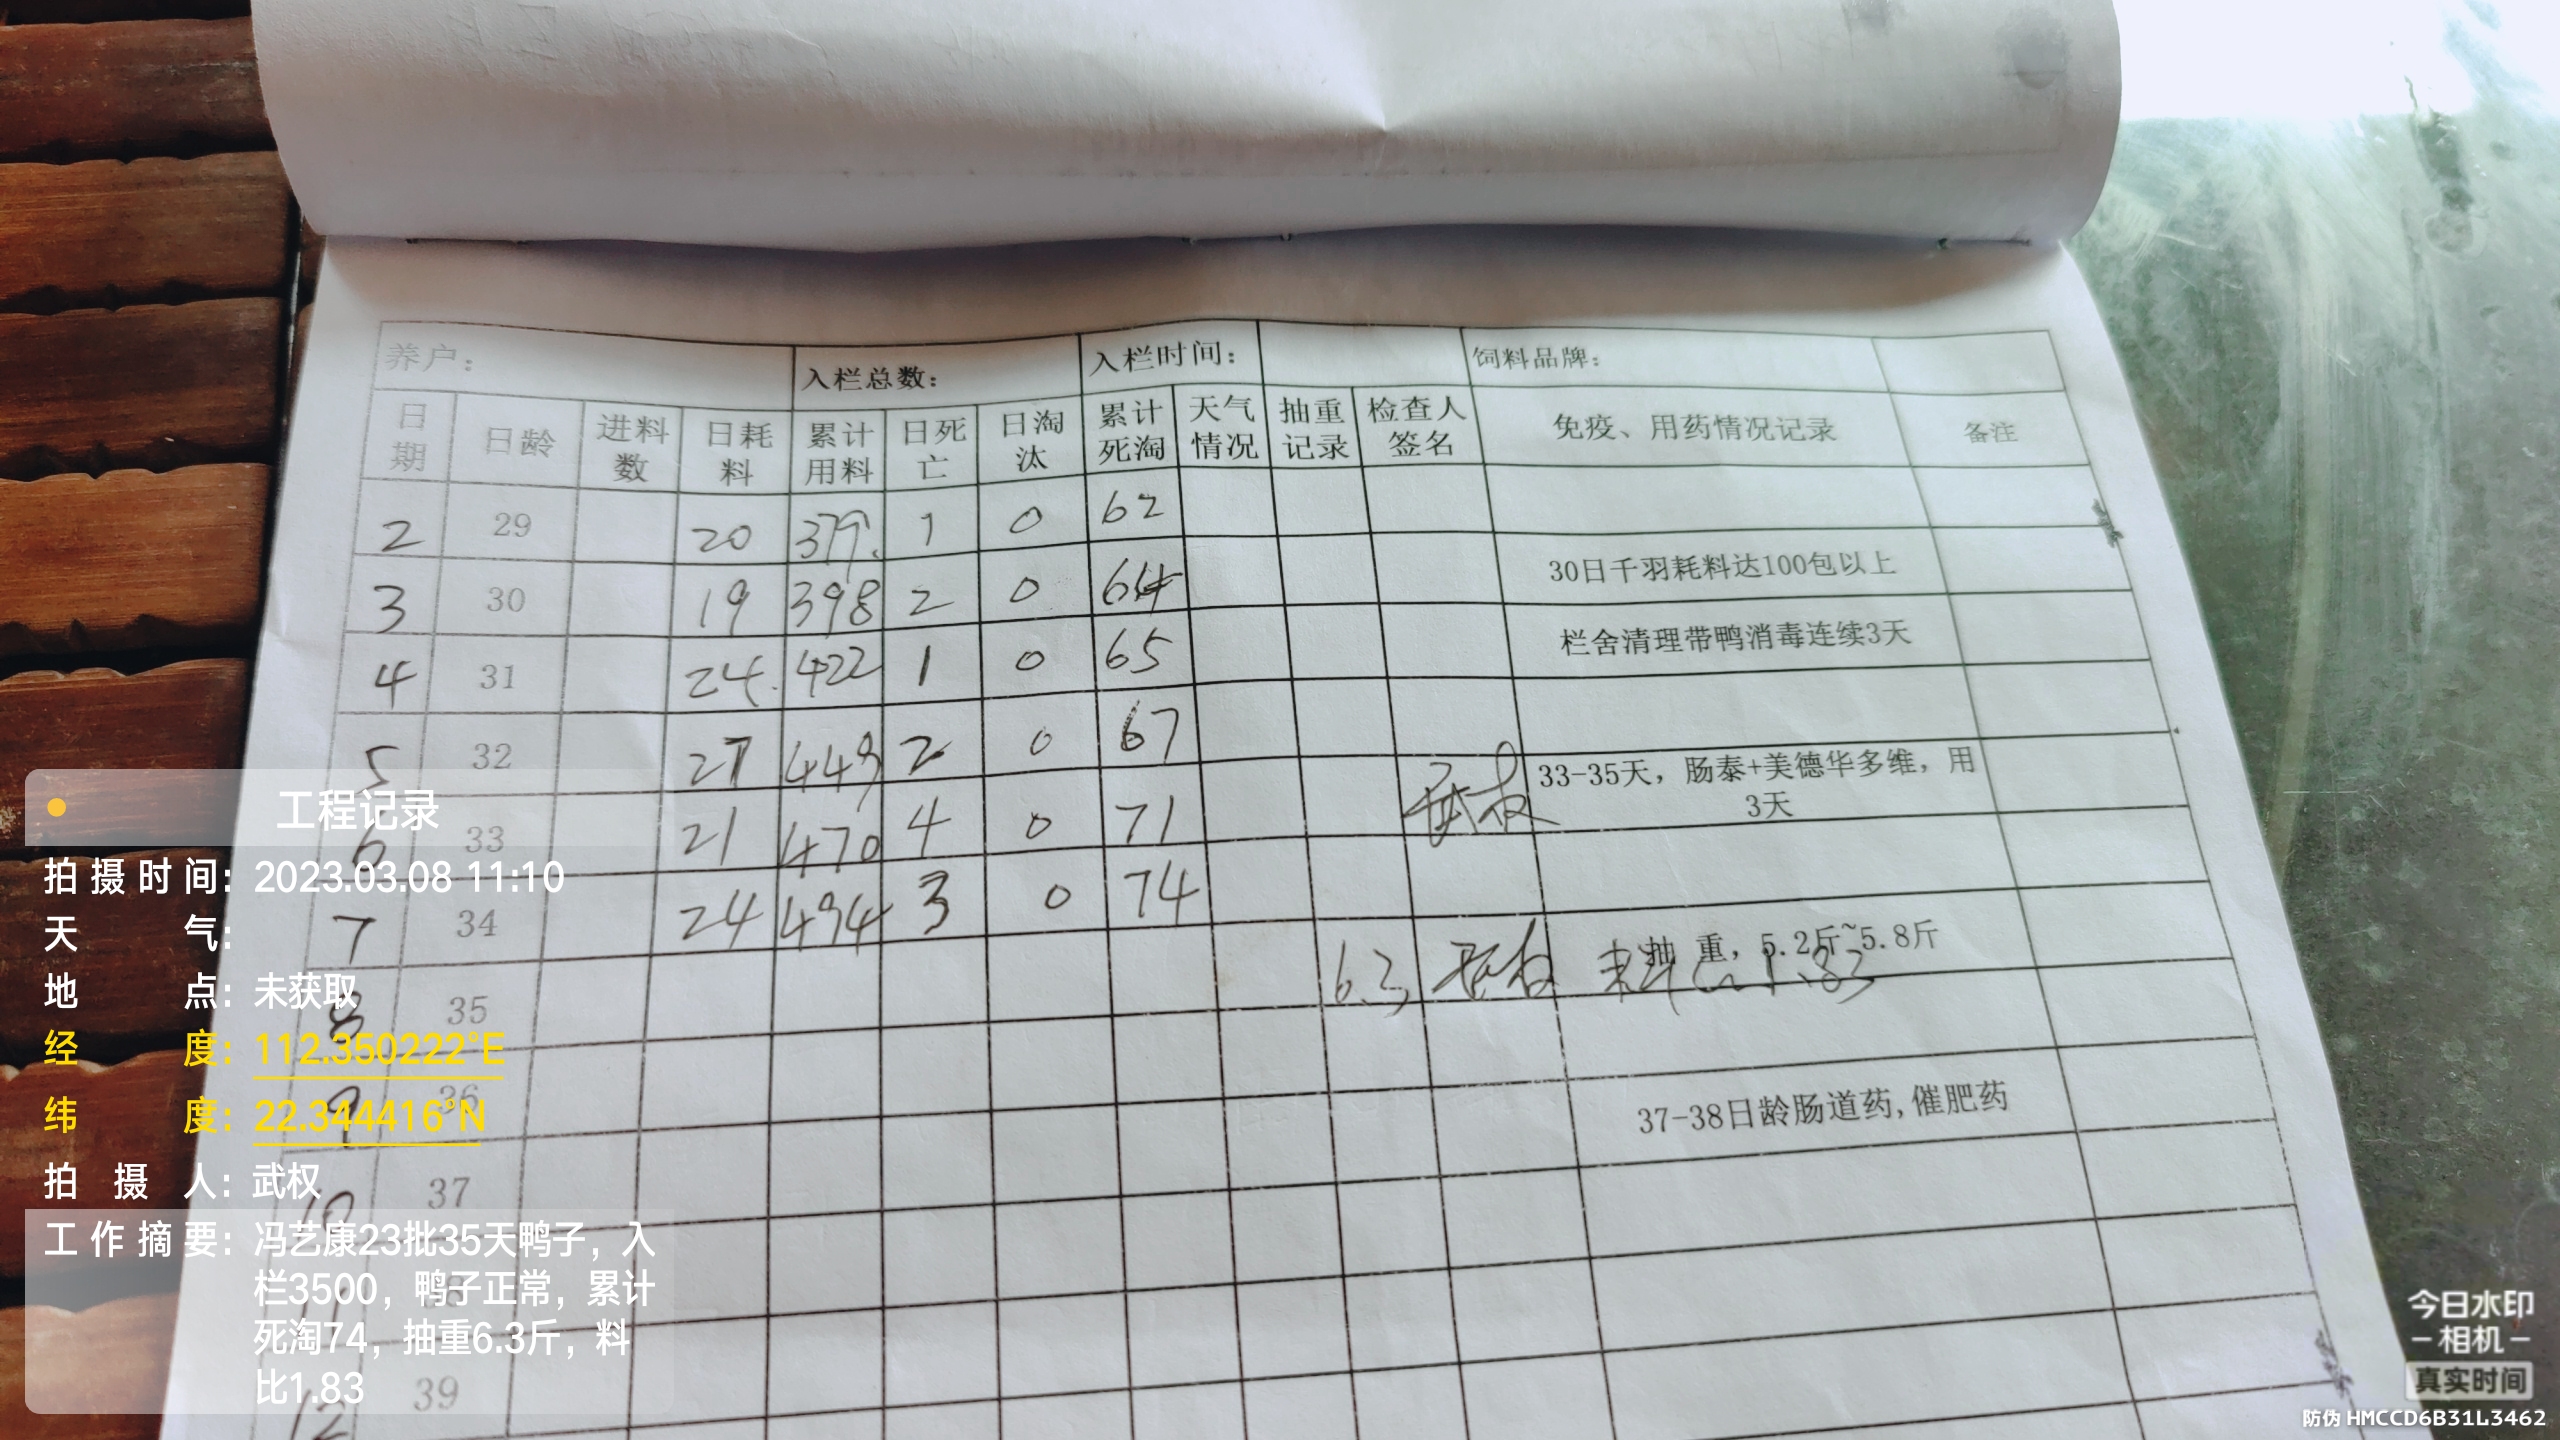 养户： 入栏总数： 入栏时间： 饲料品牌：
日期 日龄 进料数 日耗料 累计用料 日死亡 日淘汰 累计死淘 天气情况 抽重记录 检查人签名 免疫、用药情况记录 备注
2 29 20 379. 1 0 62
3 30 19 398 2 0 64 30日千羽耗料达100包以上
4 31 24. 422 1 0 65 栏舍清理带鸭消毒连续3天
5 32 27 449 2 0 67
6 33 21 470 4 0 71 武权 33-35天，肠泰+美德华多维，用3天
7 34 24 494 3 0 74
8 35 6.3 武权 抽重，5.2斤~5.8斤
料比1.83
9 36
10 37 37-38日龄肠道药,催肥药
11 38
12 39
工程记录
拍摄时间：2023.03.08 11:10
天气：
地点：未获取
经度：112.350222°E
纬度：22.344416°N
拍摄人：武权
工作摘要：冯艺康23批35天鸭子，入
栏3500，鸭子正常，累计
死淘74，抽重6.3斤，料
比1.83
今日水印
相机
真实时间
防伪 HMCCD6B31L3462